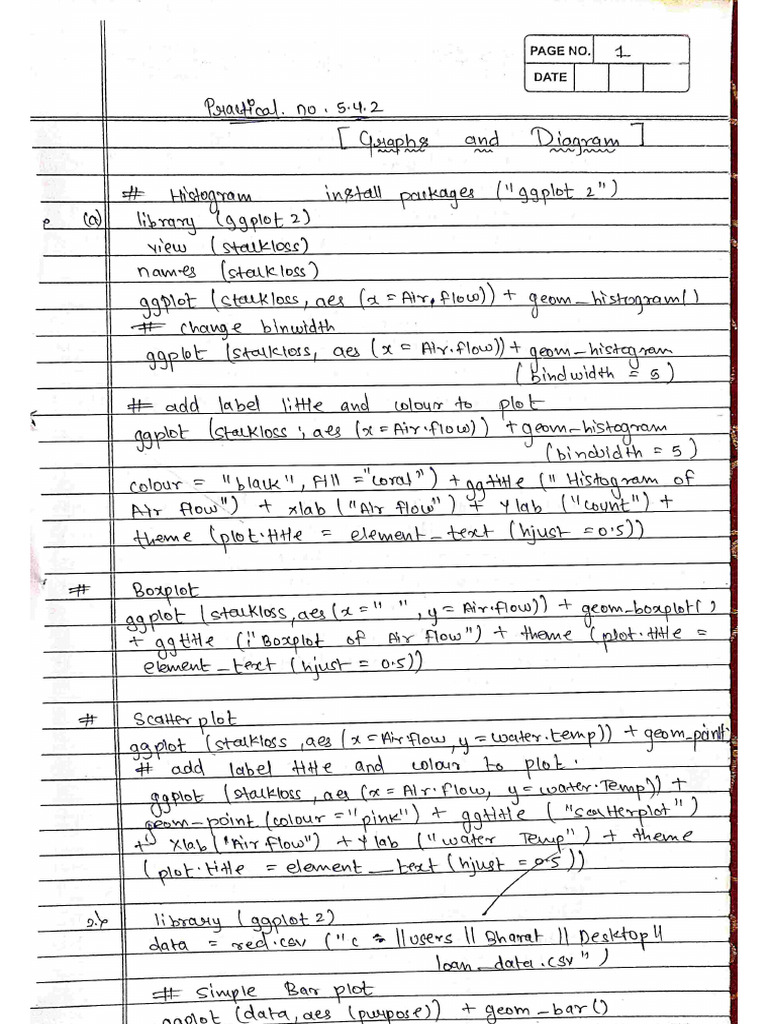 PAGE NO. 1
DATE
Practical. no. 5.4.2
[ Graphs and Diagram ]
# Histogram install packages ("ggplot 2")
(a) library (ggplot 2)
view (stalkloss)
names (stalkloss)
ggplot (stalkloss, aes (x = Air.flow)) + geom_histogram()
# change binwidth
ggplot (stalkloss, aes (x = Air.flow)) + geom_histogram
(bindwidth = 5)
# add label little and colour to plot
ggplot (stalkloss, aes (x = Air.flow)) + geom_histogram
(bindwidth = 5)
colour = "black", fill = "coral") + ggtitle (" Histogram of
Air flow") + xlab ("Air flow") + Ylab ("count") +
theme (plot.title = element_text (hjust = 0.5))
# Boxplot
ggplot (stalkloss, aes (x = " ", y = Air.flow)) + geom_boxplot()
+ ggtitle ("Boxplot of Air flow") + theme (plot.title =
element_text (hjust = 0.5))
# Scatter plot
ggplot (stalkloss, aes (x = Air.flow, y = water.temp)) + geom_point
# add label title and colour to plot.
ggplot (stalkloss, aes (x = Air.flow, y = water.Temp)) +
geom-point (colour = "pink") + ggtitle ("scatterplot")
+ Xlab ("Air flow") + Ylab ("water Temp") + theme
(plot.title = element_text (hjust = 0.5))
library (ggplot 2)
data = red.csv ("c = ||users || Bharat || Desktop ||
loan_data.csv")
# simple Bar plot
ggplot (data, aes (purpose)) + geom_bar()